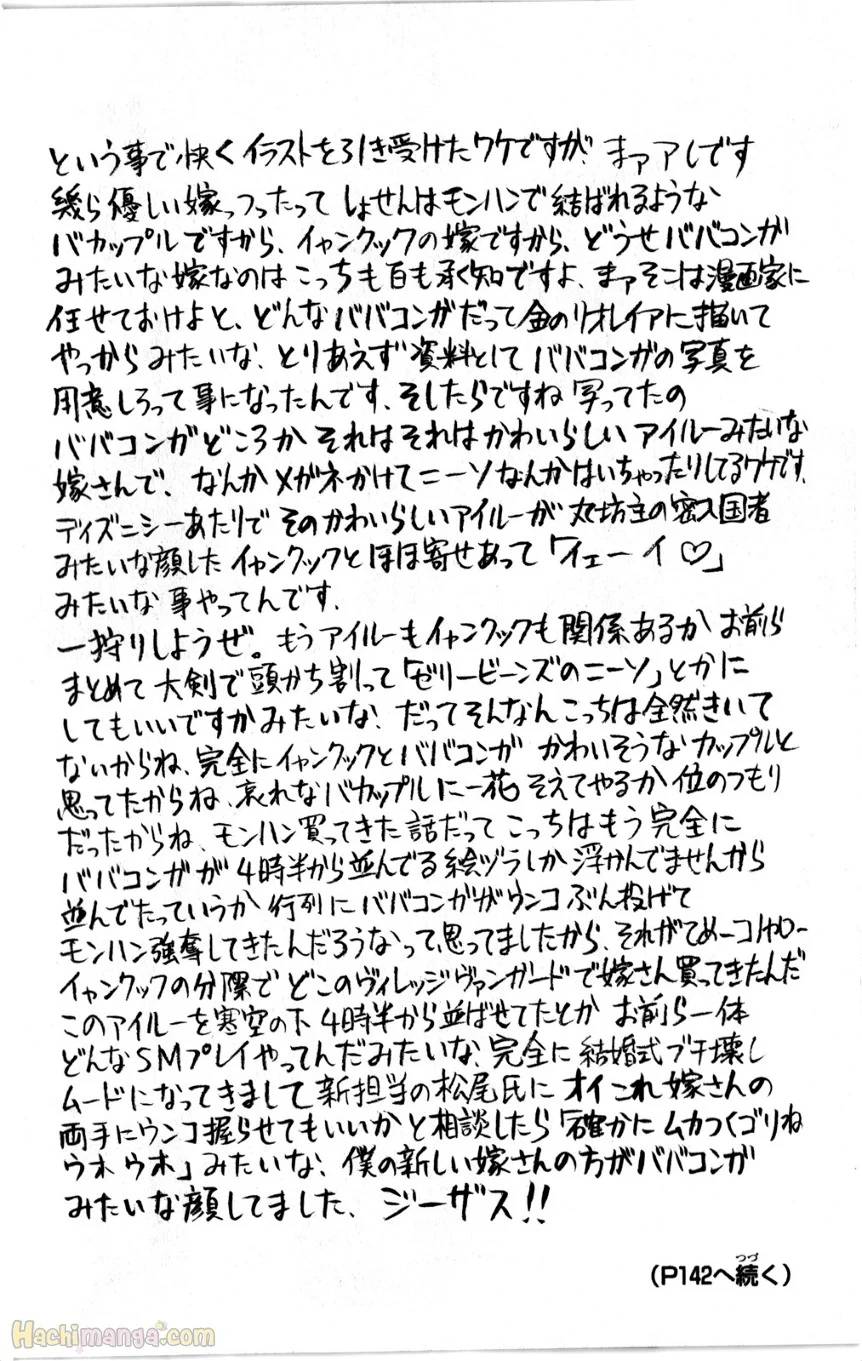 という事で快くイラストを引き受けたワケですが、まァアレです
幾ら優しい嫁っつったって しょせんはモンハンで結ばれるような
バカップルですから、イャンクックの嫁ですから、どうせババコンガ
みたいな嫁なのはこっちも百も承知ですよ、まァそこは漫画家に
任せておけよと、どんなババコンガだって金のリオレイアに描いて
やっからみたいな、とりあえず資料としてババコンガの写真を
用意しろって事になったんです、そしたらですね写ってたの
ババコンガどころかそれはそれはかわいらしいアイルーみたいな
嫁さんで、なんかメガネかけてニーソなんかはいちゃったりしてるワケです、
ディズニシーあたりでそのかわいらしいアイルーが丸坊主の密入国者
みたいな顔したイャンクックとほほ寄せあって「イェーイ♡」
みたいな事やってんです、
一狩りしようぜ。もうアイルーもイャンクックも関係あるかお前ら
まとめて大剣で頭かち割って「ゼリービーンズのニーソ」とかに
してもいいですかみたいな、だってそんなんこっちは全然きいて
ないからね、完全にイャンクックとババコンガ かわいそうなカップルと
思ってたからね、哀れなバカップルに一花そえてやるか位のつもり
だったからね、モンハン買ってきた話だってこっちはもう完全に
ババコンガが4時半から並んでる絵ヅラしか浮かんでませんから
並んでたっていうか行列にババコンガがウンコぶん投げて
モンハン強奪してきたんだろうなって思ってましたから、それがてめーコノヤロー
イャンクックの分際でどこのヴィレッジヴァンガードで嫁さん買ってきたんだ
このアイルーを寒空の下4時半から並ばせてたとか お前ら一体
どんなSMプレイやってんだみたいな、完全に結婚式ブチ壊し
ムードになってきまして新担当の松尾氏にオイこれ嫁さんの
両手にウンコ握らせてもいいかと相談したら「確かにムカつくゴリね
ウホウホ」みたいな、僕の新しい嫁さんの方がババコンガ
みたいな顔してました、ジーザス!!
(P142へ続く)
つづ
Hachimanga.com